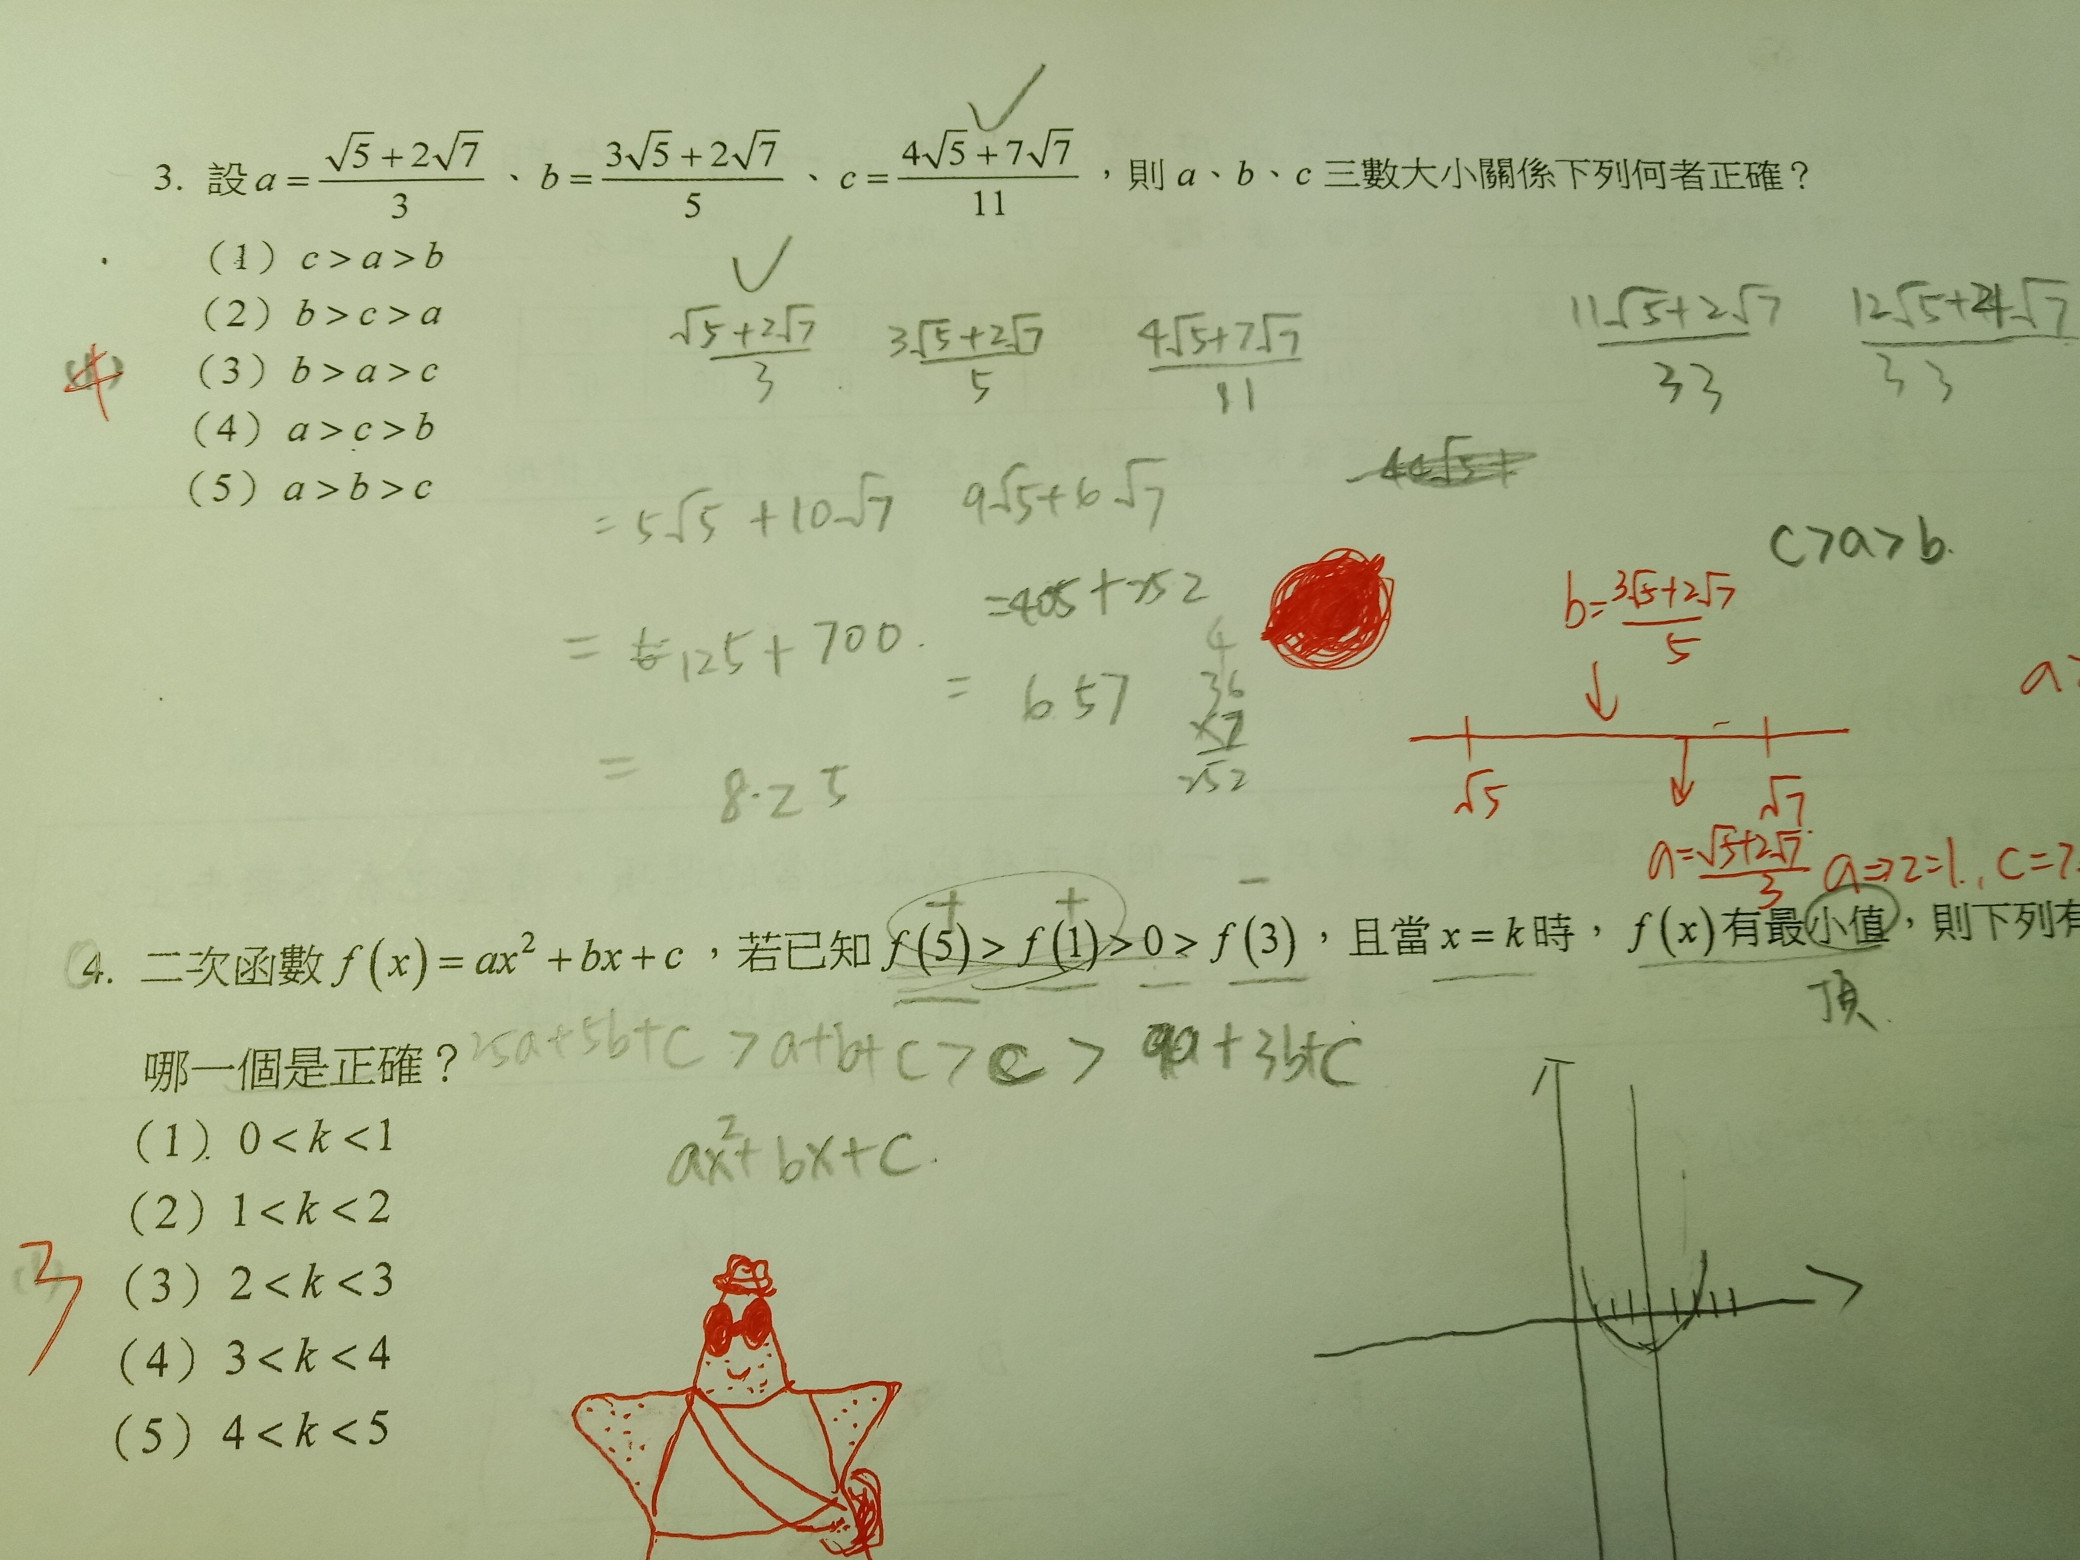 3. 設 a = (√5+2√7)/3 、 b = (3√5+2√7)/5 、 c = (4√5+7√7)/11 ,則 a、b、c 三數大小關係下列何者正確?
(1) c > a > b
(2) b > c > a
(3) b > a > c
(4) a > c > b
(5) a > b > c
4
(√5+2√7)/3 (3√5+2√7)/5 (4√5+7√7)/11
(11√5+2√7)/33 (12√5+21√7)/33
= 5√5 + 10√7 9√5+6√7
c > a > b.
= 125 + 700. = 405 + 252
= 8.25 = 657
4
36
×7
252
b = (3√5+2√7)/5
√5 √7
a = (√5+2√7)/3 a⇒2=1., c=7
4. 二次函數 f(x) = ax² + bx + c ,若已知 f(5) > f(1) > 0 > f(3) ,且當 x = k 時, f(x) 有最小值,則下列有
+ + −
頂
哪一個是正確?
25a+5b+c > a+b+c > c > 9a+3b+c
ax²+bx+c.
(1) 0 < k < 1
(2) 1 < k < 2
(3) 2 < k < 3
(4) 3 < k < 4
(5) 4 < k < 5
3